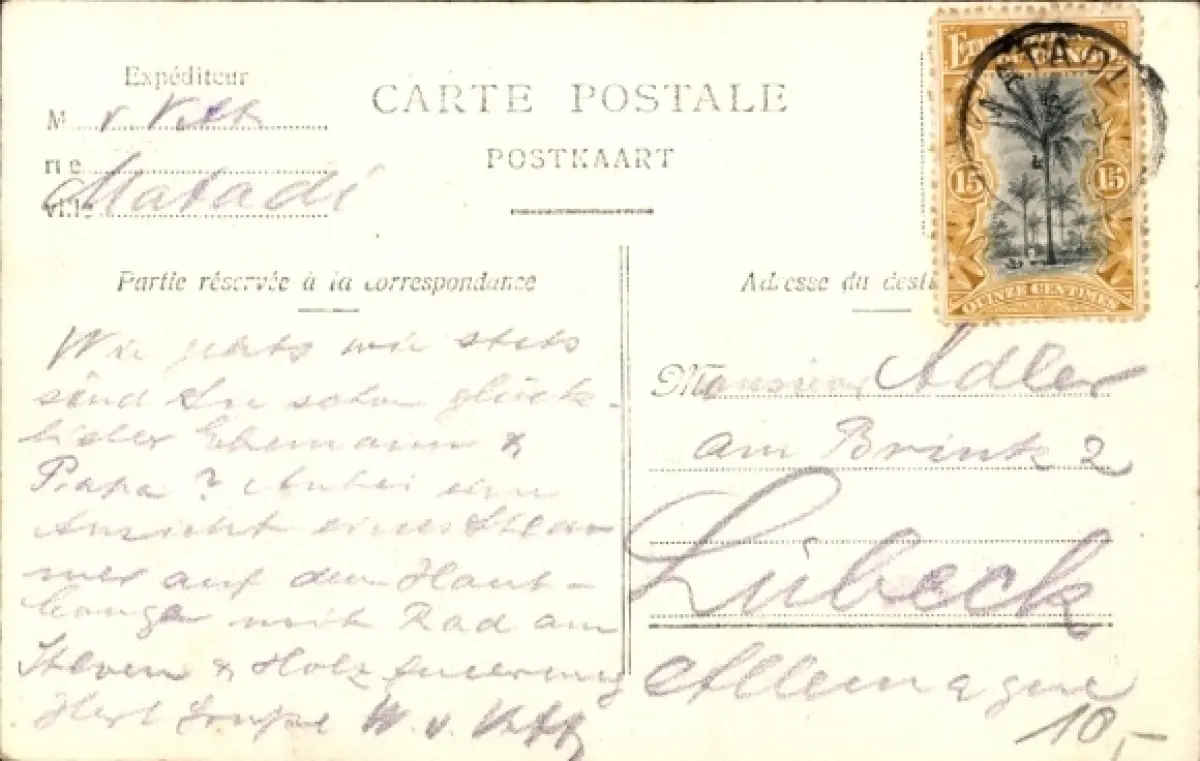 Expéditeur
M v.
rue
Matadi
CARTE POSTALE
POSTKAART
MATADI
15 15
QUINZE CENTIMES
Partie réservée à la correspondance
Wie gehts wie stets
sind Sie schon glück-
licher Ehemann &
Papa? Anbei eine
Ansicht eines Steam
mer auf dem Haut-
Congo mit Rad am
Steven & Holzfeuerung
W. v.
Adresse du
Monsieur Adler
am Brink 2
Lübeck
Allemagne
10,-